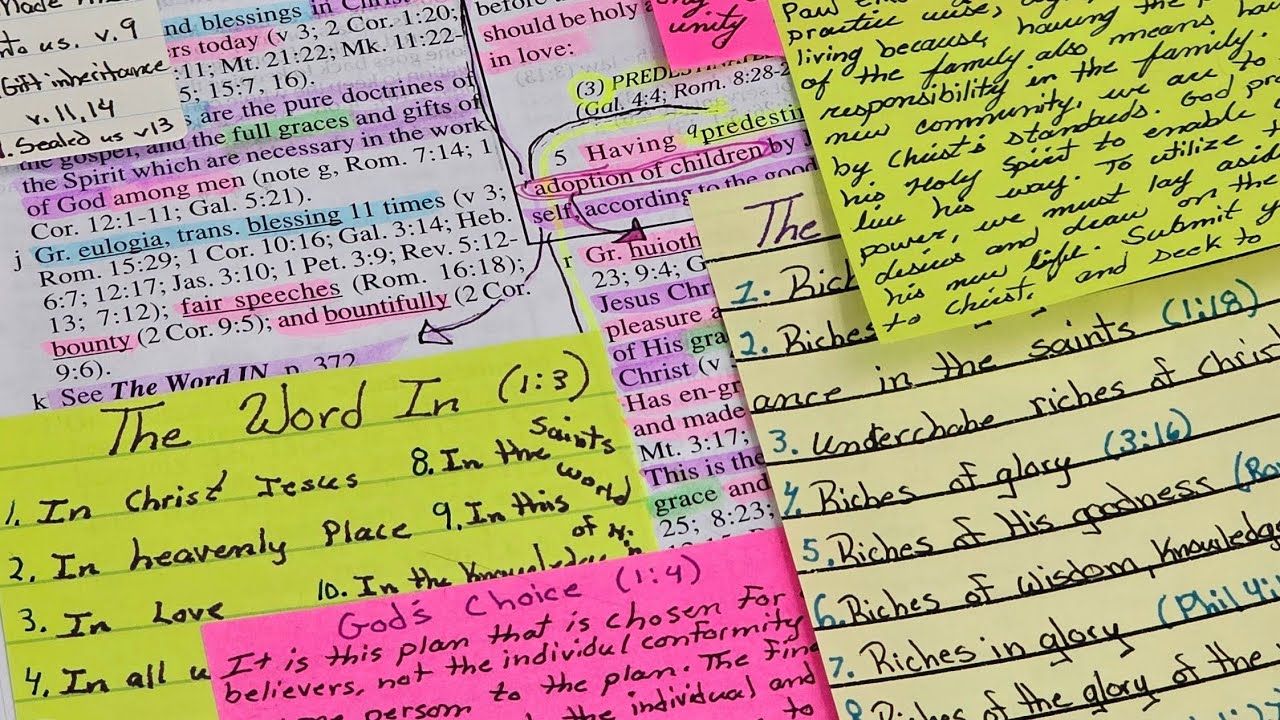 Made
to us. v.9
Gift inheritance
v. 11, 14
Sealed us v13
and blessings in Christ
ers today (v 3; 2 Cor. 1:20;
:11; Mt. 21:22; Mk. 11:22-
5; 15:7, 16).
are the pure doctrines of
the gospel, and the full graces and gifts of
the Spirit which are necessary in the work
of God among men (note g, Rom. 7:14; 1
Cor. 12:1-11; Gal. 5:21).
j Gr. eulogia, trans. blessing 11 times (v 3;
Rom. 15:29; 1 Cor. 10:16; Gal. 3:14; Heb.
6:7; 12:17; Jas. 3:10; 1 Pet. 3:9; Rev. 5:12-
13; 7:12); fair speeches (Rom. 16:18);
bounty (2 Cor. 9:5); and bountifully (2 Cor.
9:6).
k See The Word IN, p. 372
before
should be holy
in love:
(3) PREDESTINATE
(Gal. 4:4; Rom. 8:28-
5 Having q predesti
adoption of children by J
self, according to the good
r Gr. huioth
23; 9:4; G
Jesus Chr
pleasure a
of His gra
Christ (v
Has en-gr
and made
Mt. 3:17;
This is the
grace and
25; 8:23;
unity
practice wise,
living because, having the
of the family also means hav
responsibility in the family.
new community, we are to
by Christ's standards. God pro
his Holy Spirit to enable
live his way. To utilize
power, we must lay aside
desires and draw on the
his new life. Submit y
to Christ, and seek to
The Word In (1:3)
1. In Christ Jesus
2. In heavenly Place
3. In Love
4. In all
8. In the saints
9. In this world
10. In the Knowledge of
God's Choice (1:4)
It is this plan that is chosen for
believers, not the individual conformity
person to the plan. The
the individual and
to
The
1. Rich
2. Riches
ance in the saints (1:18)
3. Underchabe riches of Christ
4. Riches of glory (3:16)
5. Riches of His goodness (Ro
6. Riches of wisdom, Knowledg
7. Riches in glory (Phil 4:
8. Riches of the glory of the